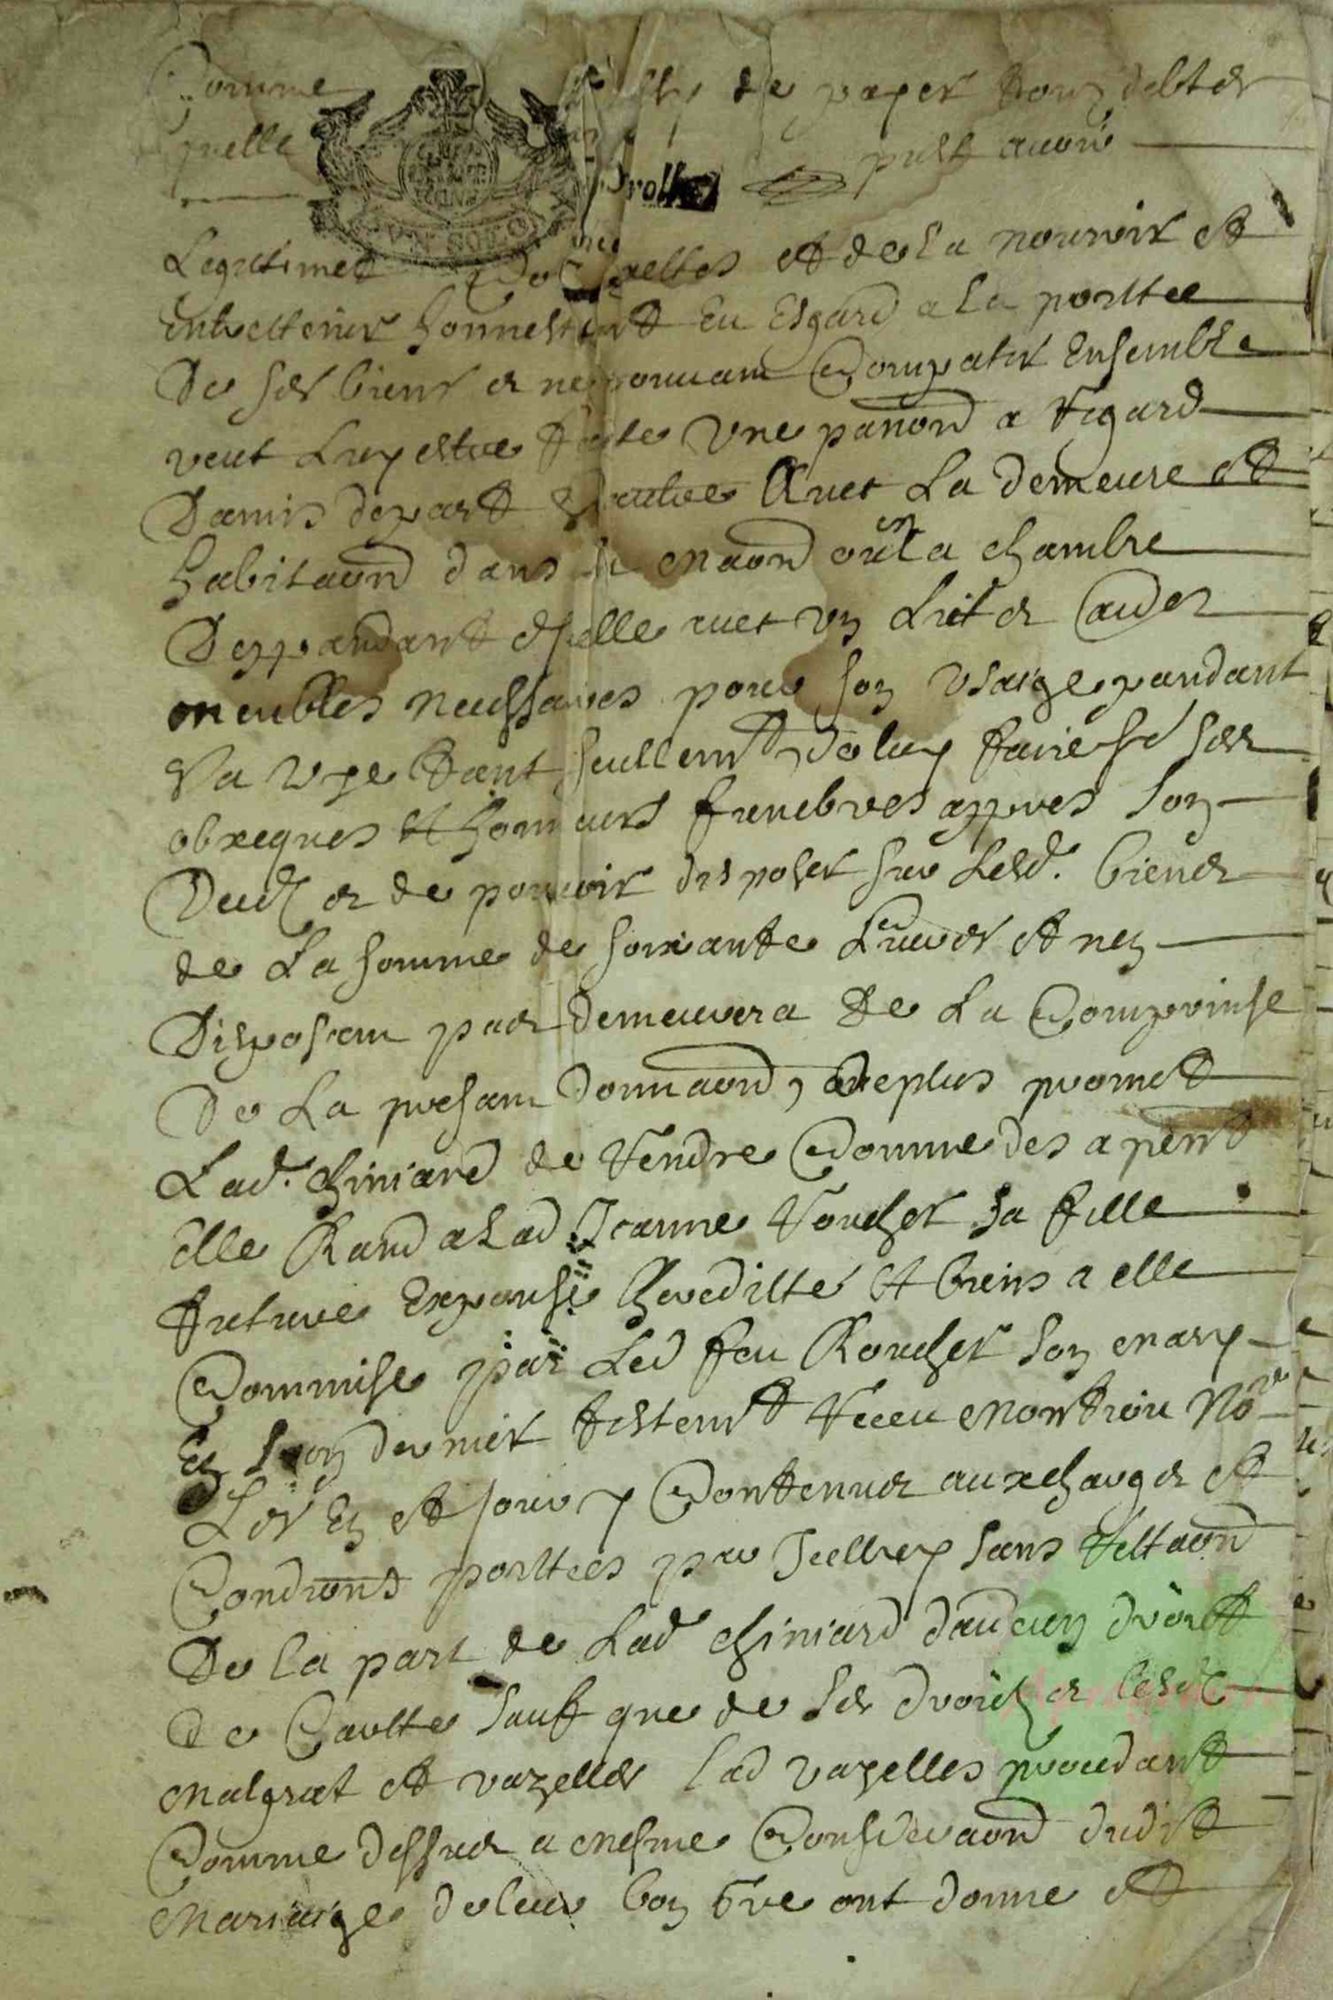 Comme de payer tous debtes
quelle puist avoir
VN SOL
Legitimes et de la nourrir et
Entrettenir honnestemt Eu Esgard a la porttee
De ses biens et ne pouvant Compatir Ensemble
veut Luy estre faite Une pānōn a Regard
Damis depart et autre Avec La demeure et
habitaōn dans la maōn en La chambre
Deppandant dicelle avec un Lict et Audes
meubles necessaires pour son Usaige pandant
Sa vye tant seullemt, de luy faire ses
obxeques et honneurs funebres appres son
Deces et de pouvoir disposer sur Lesd. biens
de La somme de soixante Livres et nen
Disposant pas demeurera de La Comprinse
De La presant Donnaōn, de plus promet
Lad. chiniard de Rendre Comme des a pent
elle Rand a Lad Jeanne Roucher sa fille
future Expouse Lheredilté et biens a elle
Commise par Led feu Roucher son mary
En son dernier testemt Receu Montriou Nore
Les En et jour y Contenues aux charges et
Condions porttees par Icelluy sans Rettaōn
De la part de Lad chiniard daucun droict
de Caultte sauf que de ses droicts et Lesd
malgrat et vazelles Lad vazelles proucedant
Comme dessus a mesme Consideraōn dudit
Mariaige de leur bon gre ont donne et